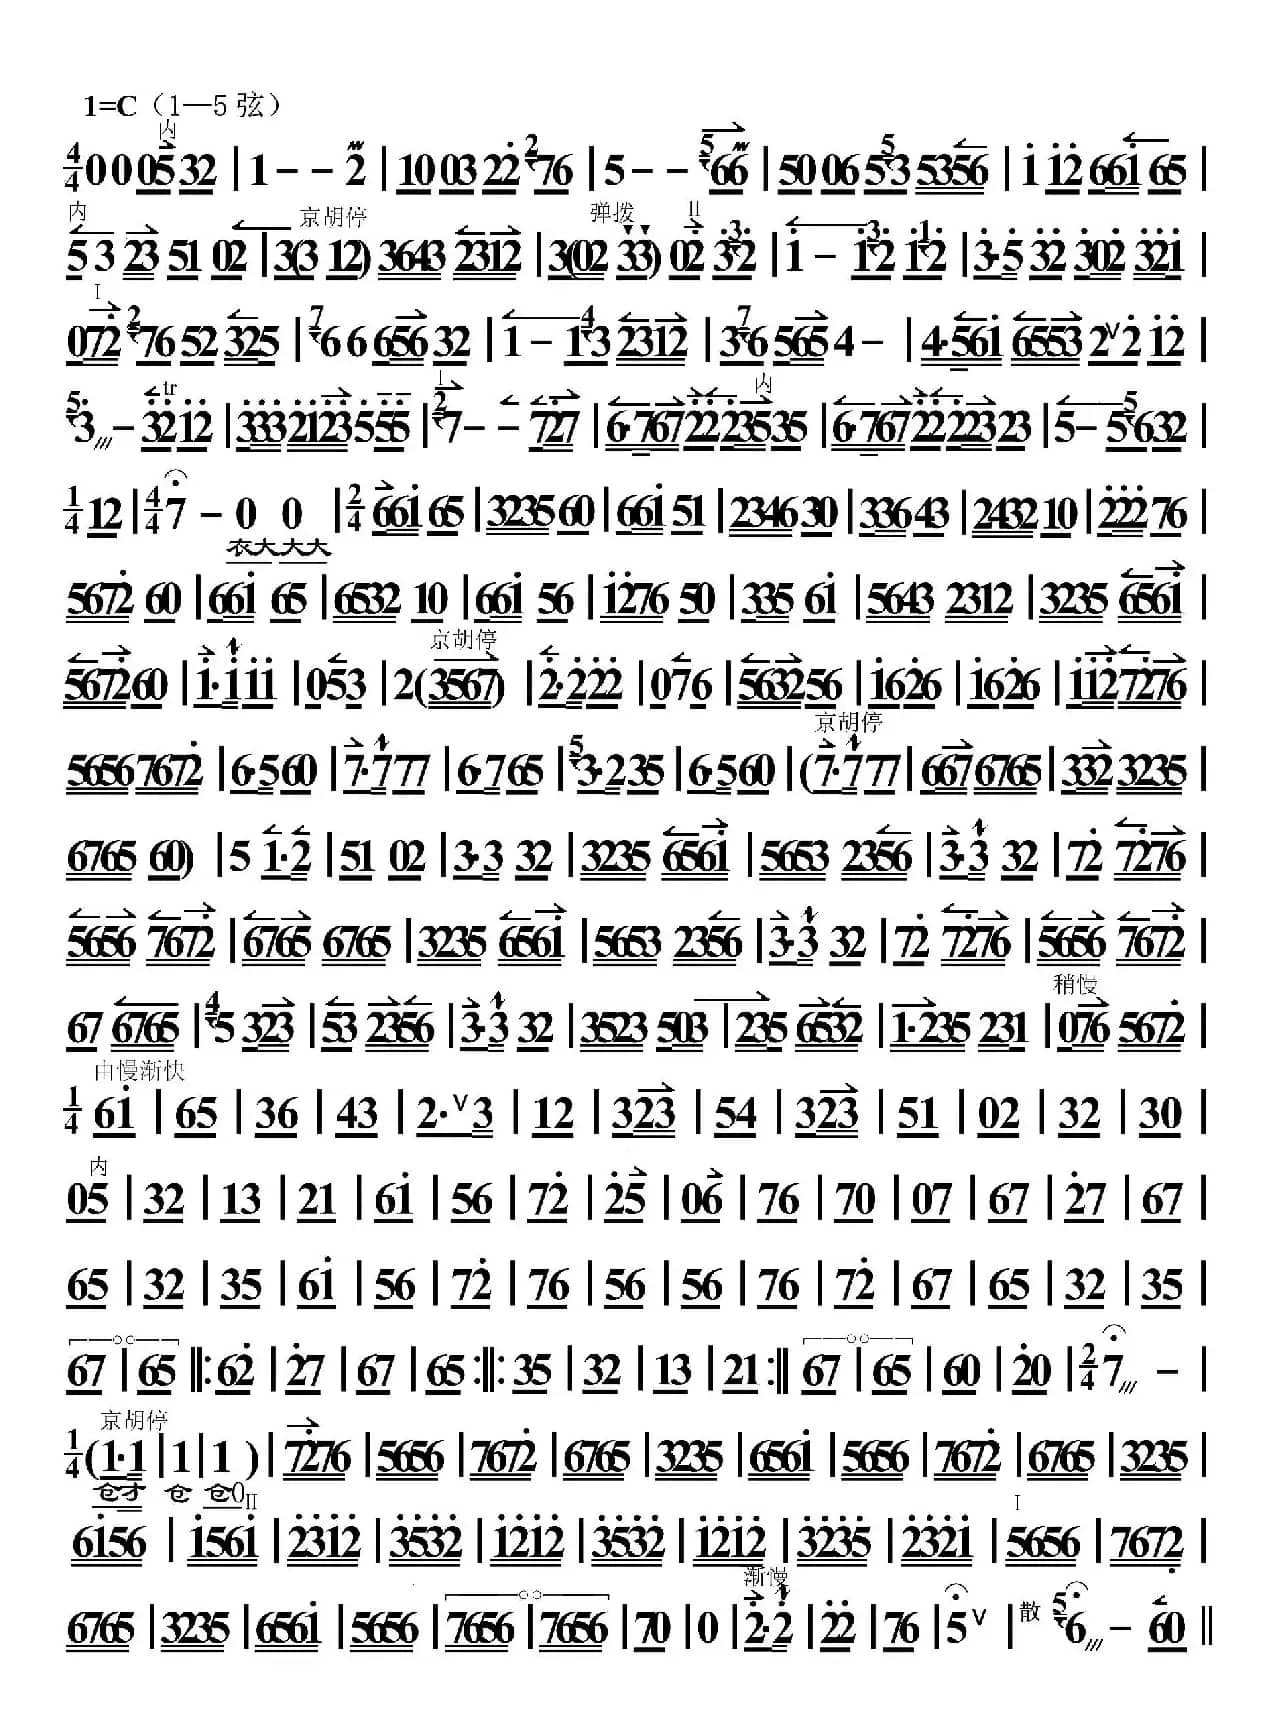 1=C（1—5弦）
内
4/4 0 0 05 32 | 1 - - 2 | 10 03 22 2 76 | 5 - - 5 66 | 50 06 53 5356 | 1 12 661 65 |
内 京胡停 弹拨 II
5 3 23 51 02 | 3(3 12) 3643 2312 | 3(02 33) 02 3 32 | 1 - 3 12 1 12 | 3·5 32 302 321 |
I
072 2 76 52 325 | 7 6 6 656 32 | 1 - 1 4 3 2312 | 3 7 6 565 4 - | 4·561 6553 2 ∨ 2 12 |
tr I 内
5 3 - 32 12 | 333 2123 555 | 2 7 - - 727 | 6·767 222 3535 | 6·767 222 2323 | 5 - 5 5 632 |
1/4 12 | 4/4 7 - 0 0 | 2/4 661 65 | 3235 60 | 661 51 | 2346 30 | 336 43 | 2432 10 | 222 76 |
衣大大大
5672 60 | 661 65 | 6532 10 | 661 56 | 1276 50 | 335 61 | 5643 2312 | 3235 6561 |
京胡停
567260 | 1·111 | 053 | 2(3567) | 2·222 | 076 | 563256 | 1626 | 1626 | 1127276 |
京胡停
56567672 | 6·560 | 7·777 | 6·765 | 5 3·235 | 6·560 | (7·777 | 6676765 | 3323235 |
6765 60) | 5 1·2 | 51 02 | 3·3 32 | 3235 6561 | 5653 2356 | 3·3 32 | 72 7276 |
5656 7672 | 6765 6765 | 3235 6561 | 5653 2356 | 3·3 32 | 72 7276 | 5656 7672 |
稍慢
67 6765 | 4 5 323 | 53 2356 | 3·3 32 | 3523 503 | 235 6532 | 1·235 231 | 076 5672 |
由慢渐快
1/4 61 | 65 | 36 | 43 | 2·∨3 | 12 | 323 | 54 | 323 | 51 | 02 | 32 | 30 |
内
05 | 32 | 13 | 21 | 61 | 56 | 72 | 25 | 06 | 76 | 70 | 07 | 67 | 27 | 67 |
65 | 32 | 35 | 61 | 56 | 72 | 76 | 56 | 56 | 76 | 72 | 67 | 65 | 32 | 35 |
67 | 65 ‖: 62 | 27 | 67 | 65 :‖: 35 | 32 | 13 | 21 :‖ 67 | 65 | 60 | 20 | 2/4 7 - |
京胡停
1/4 (1·1 | 1 | 1 ) | 7276 | 5656 | 7672 | 6765 | 3235 | 6561 | 5656 | 7672 | 6765 | 3235 |
仓才 仓 仓0 II I
6156 | 1561 | 2312 | 3532 | 1212 | 3532 | 1212 | 3235 | 2321 | 5656 | 7672 |
渐慢
6765 | 3235 | 6561 | 5656 | 7656 | 7656 | 70 | 0 | 2·2 | 22 | 76 | 5 ∨ | 散 5 6 - 60 ‖